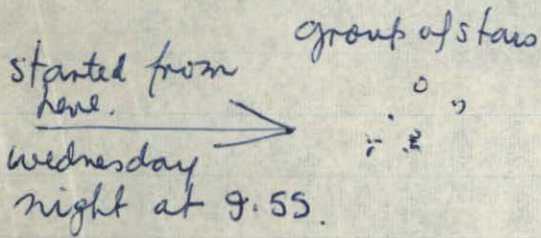 group of stars
started from
here.
wednesday
night at 9.55.